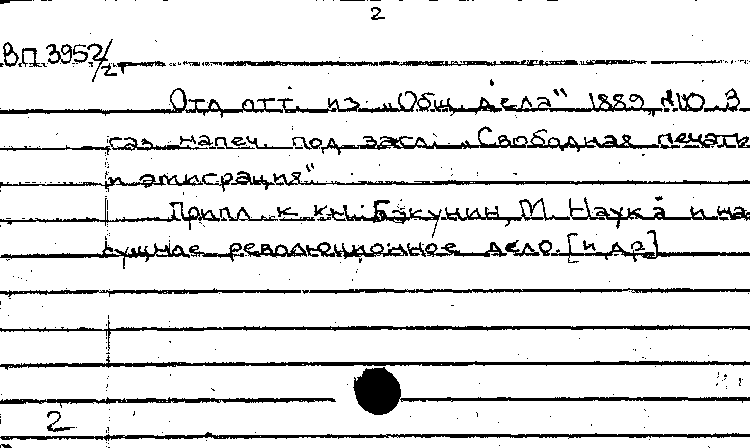 2
ВП 3952/2т
Отд. отт. из „Общ. дела" 1889, №110. В
газ. напеч. под загл.: „Свободная печать
и эмиграция"
Припл. к кн.: Бакунин, М. Наука и на-
сущное революционное дело. [и др]
2